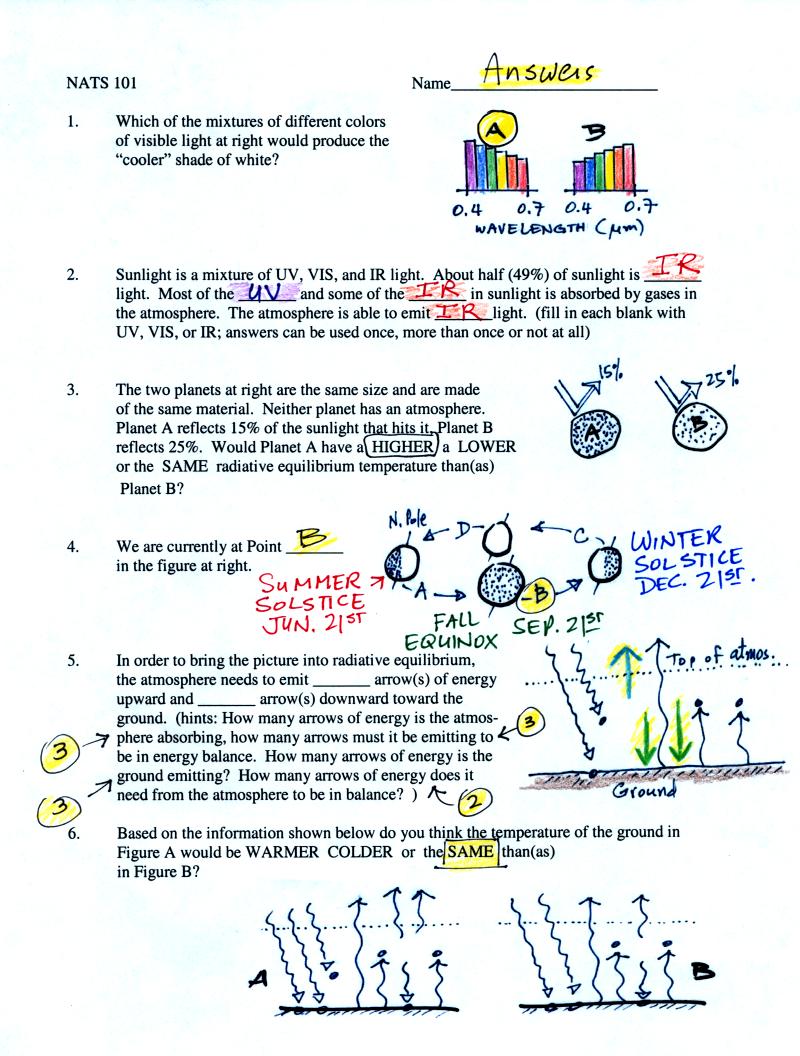 NATS 101
Name Answers
1. Which of the mixtures of different colors
of visible light at right would produce the
“cooler” shade of white?
A
B
0.4 0.7 0.4 0.7
WAVELENGTH (μm)
2. Sunlight is a mixture of UV, VIS, and IR light. About half (49%) of sunlight is IR
light. Most of the UV and some of the IR in sunlight is absorbed by gases in
the atmosphere. The atmosphere is able to emit IR light. (fill in each blank with
UV, VIS, or IR; answers can be used once, more than once or not at all)
3. The two planets at right are the same size and are made
of the same material. Neither planet has an atmosphere.
Planet A reflects 15% of the sunlight that hits it, Planet B
reflects 25%. Would Planet A have a HIGHER a LOWER
or the SAME radiative equilibrium temperature than(as)
Planet B?
15%
25%
A
B
4. We are currently at Point B
in the figure at right.
N. Pole
D
C
A
B
SUMMER
SOLSTICE
JUN. 21ST
FALL
EQUINOX
SEP. 21ST
WINTER
SOLSTICE
DEC. 21ST.
5. In order to bring the picture into radiative equilibrium,
the atmosphere needs to emit ________ arrow(s) of energy
upward and ________ arrow(s) downward toward the
ground. (hints: How many arrows of energy is the atmos-
phere absorbing, how many arrows must it be emitting to
be in energy balance. How many arrows of energy is the
ground emitting? How many arrows of energy does it
need from the atmosphere to be in balance? )
3
3
3
2
Top of atmos.
Ground
6. Based on the information shown below do you think the temperature of the ground in
Figure A would be WARMER COLDER or the SAME than(as)
in Figure B?
A
B